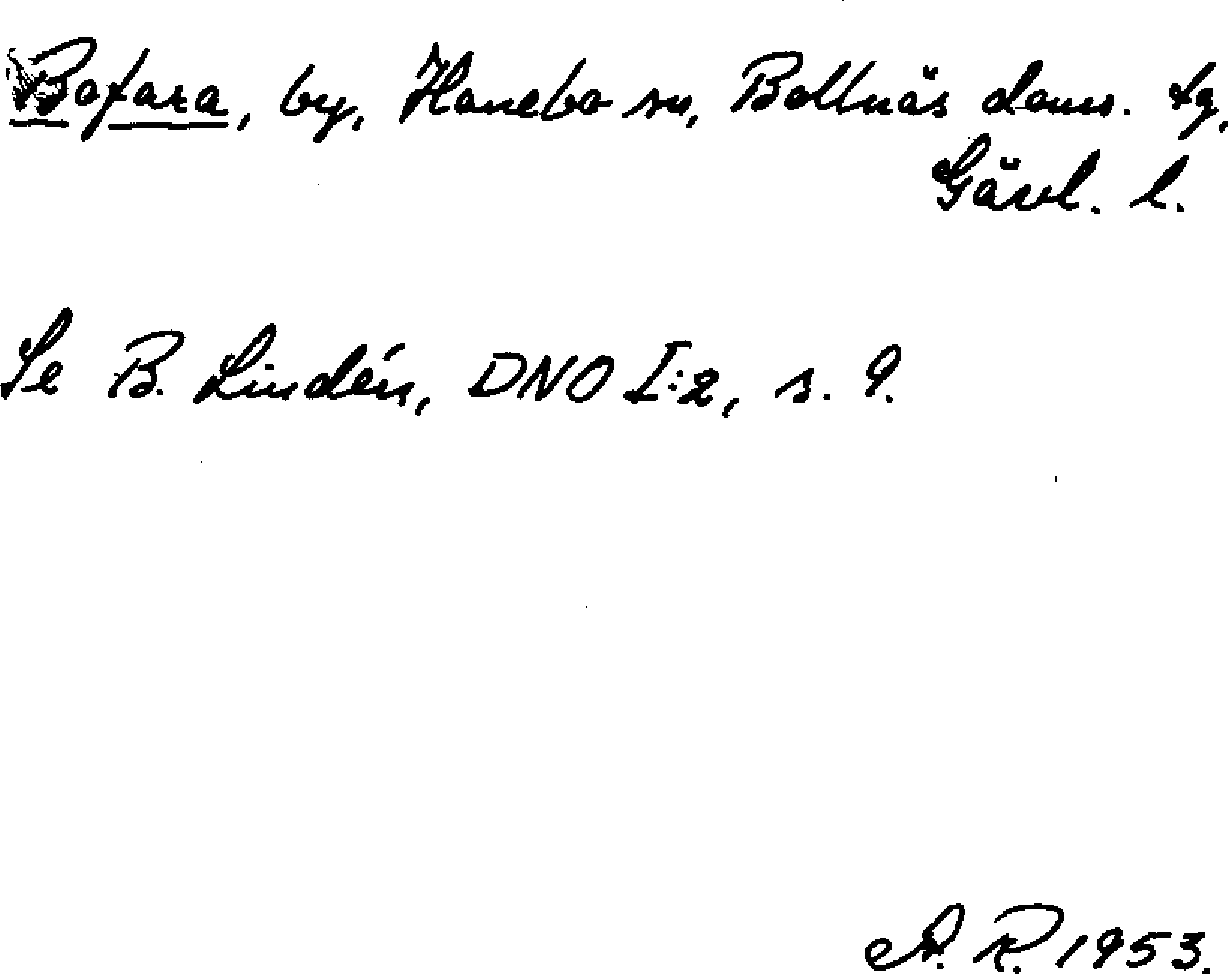 Bofara, by, Hanebo sn, Bollnäs doms. tg,
Gävl. l.
Se B. Lindén, DNO I:2, s. 9.
A. R. 1953.